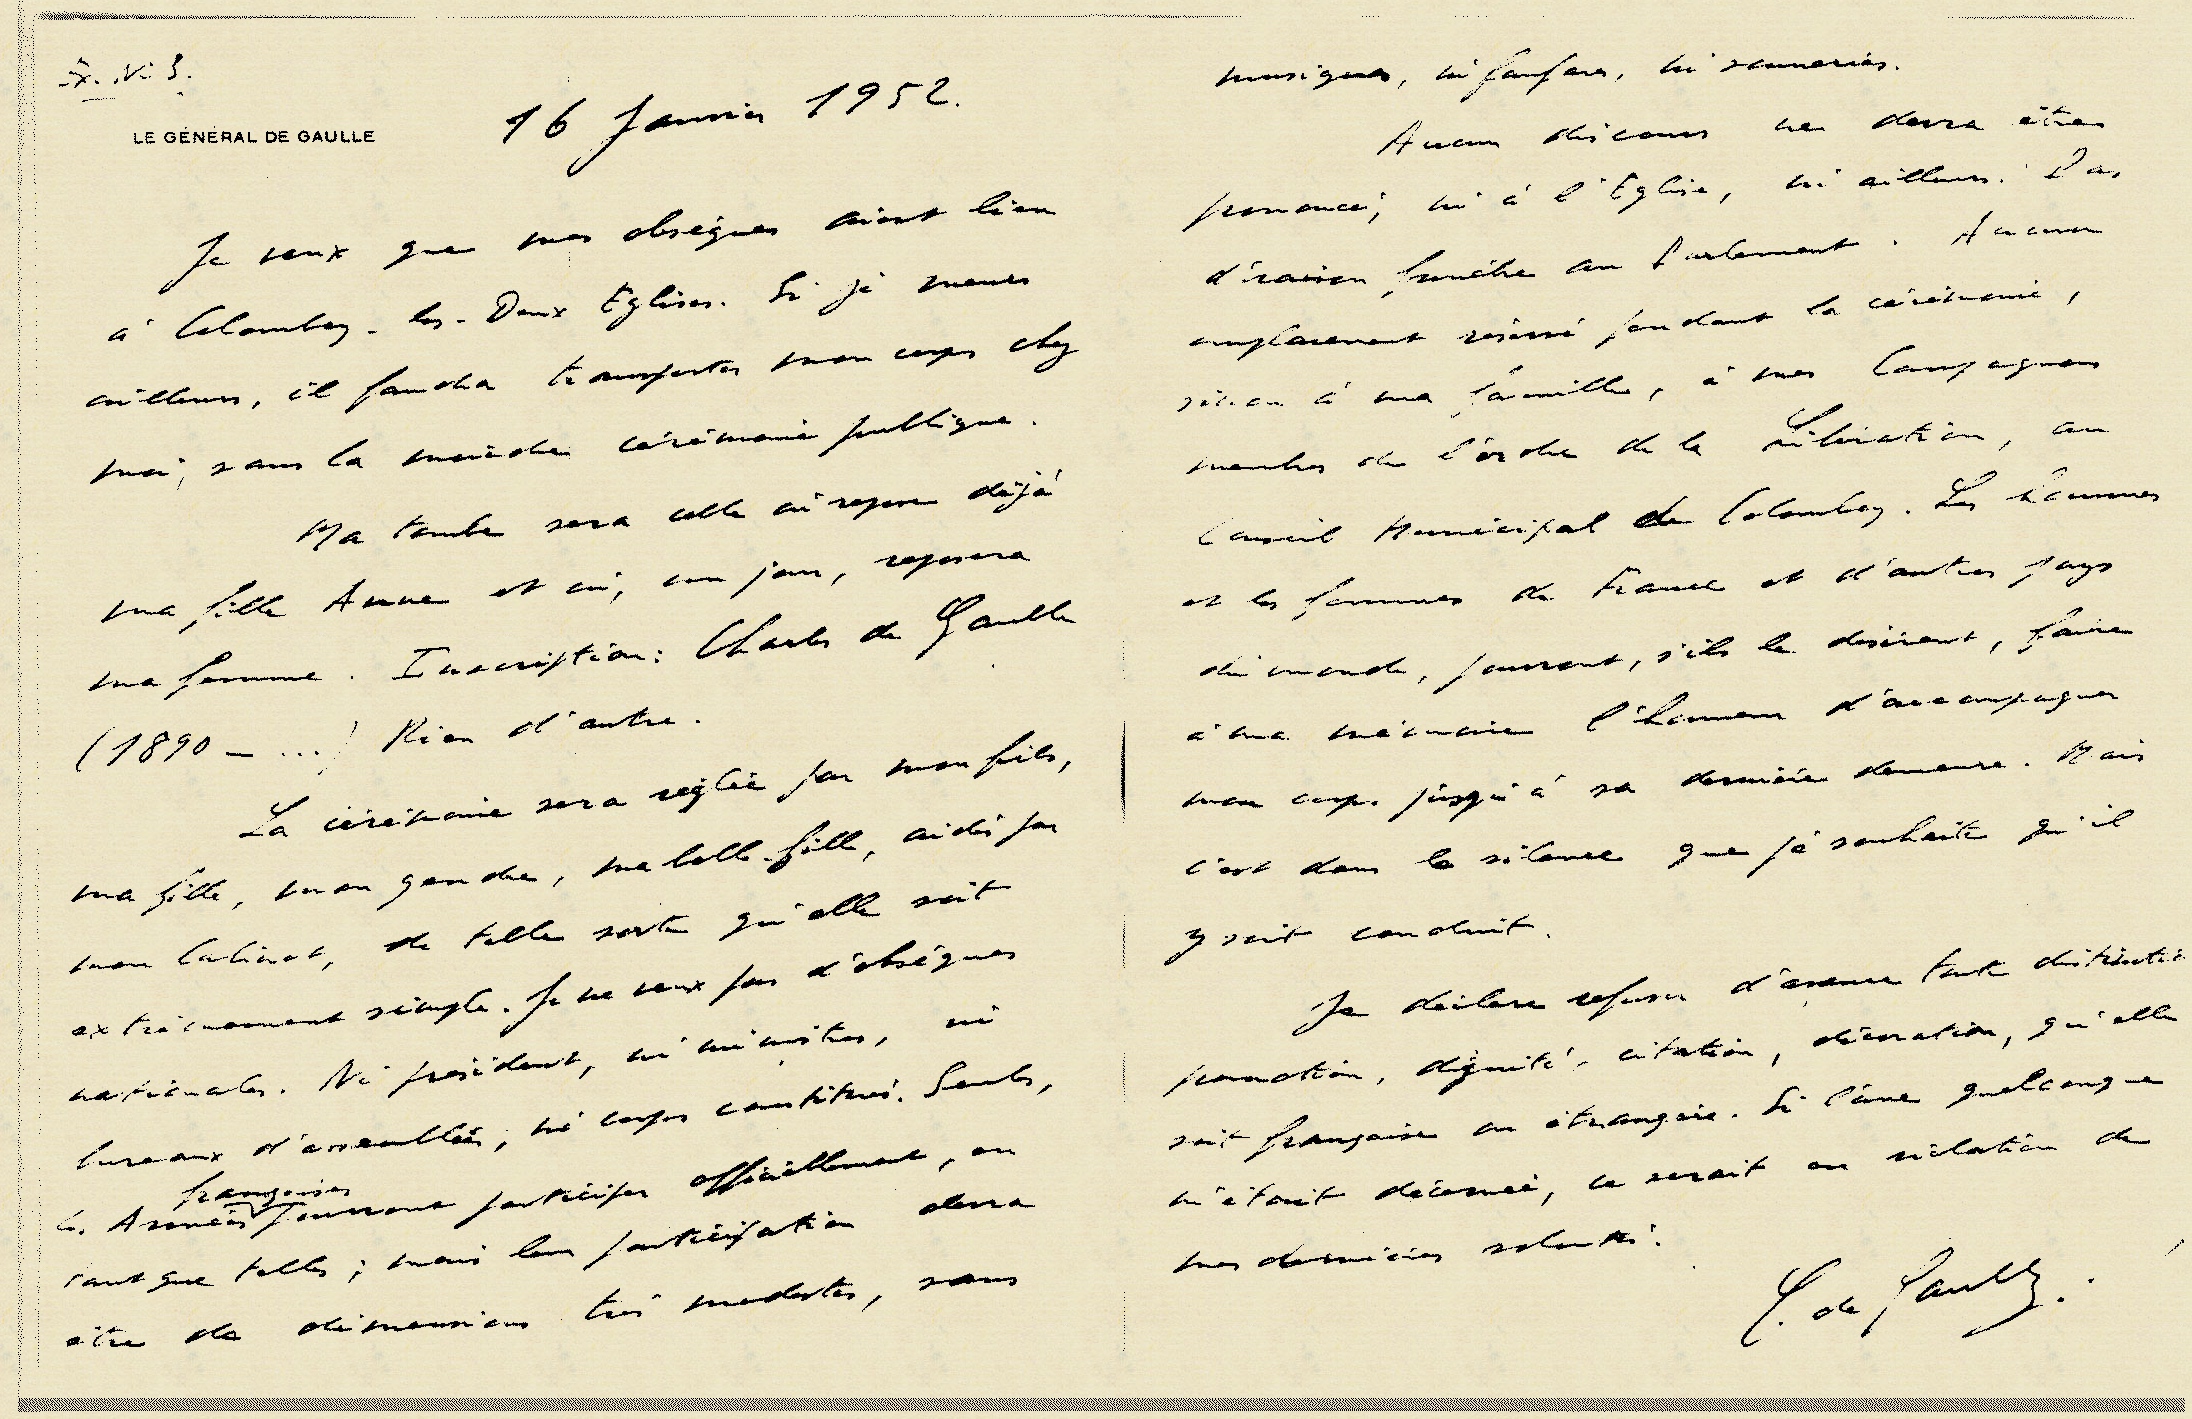 Ex. No 3.
LE GÉNÉRAL DE GAULLE
16 Janvier 1952.
Je veux que mes obsèques aient lieu
à Colombey-les-Deux Eglises. Si je meurs
ailleurs, il faudra transporter mon corps chez
moi, sans la moindre cérémonie publique.
Ma tombe sera celle où repose déjà
ma fille Anne et où, un jour, reposera
ma femme. Inscription : Charles de Gaulle
(1890 - ...) Rien d'autre.
La cérémonie sera réglée par mon fils,
ma fille, mon gendre, ma belle-fille, aidés par
mon Cabinet, de telle sorte qu'elle soit
extrêmement simple. Je ne veux pas d'obsèques
nationales. Ni président, ni ministres, ni
bureaux d'assemblées, ni corps constitués. Seules,
françaises
les Armées pourront participer officiellement, en
tant que telles ; mais leur participation devra
être de dimensions très modestes, sans
musiques, ni fanfares, ni sonneries.
Aucun discours ne devra être
prononcé, ni à l'Eglise, ni ailleurs. Pas
d'oraison funèbre au Parlement. Aucun
emplacement réservé pendant la cérémonie,
sinon à ma famille, à mes Compagnons
membres de l'ordre de la Libération, au
Conseil Municipal de Colombey. Les hommes
et les femmes de France et d'autres pays
du monde, pourront, s'ils le désirent, faire
à ma mémoire l'honneur d'accompagner
mon corps jusqu'à sa dernière demeure. Mais
c'est dans le silence que je souhaite qu'il
y soit conduit.
Je déclare refuser d'avance toute distinctio
promotion, dignité, citation, décoration, qu'elle
soit française ou étrangère. Si l'une quelconque
m'était décernée, ce serait en violation de
mes dernières volontés.
C. de Gaulle.